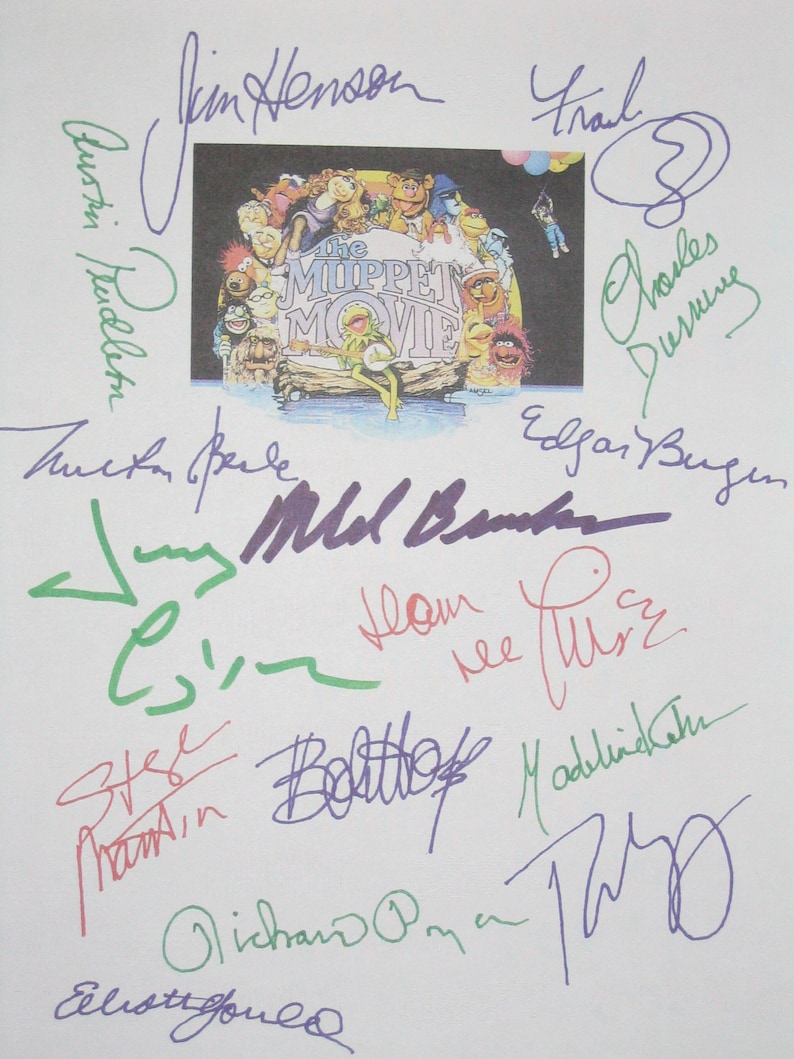 Jim Henson
Frank Oz
Austin Pendleton
The
MUPPET
MOVIE
AMSEL
Charles
Durning
Milton Berle
Edgar Bergen
Mel Brooks
James
Coburn
Cloris
Leachman
Steve
Martin
Bob Hope
Madeline Kahn
Richard Pryor
Elliott Gould